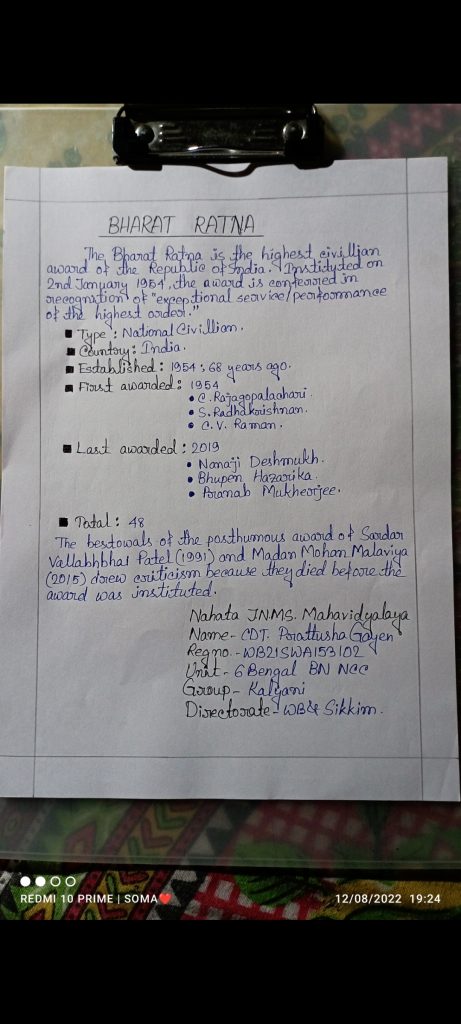 BHARAT RATNA
The Bharat Ratna is the highest civillian
award of the Republic of India. Instituted on
2nd January 1954, the award is conferred in
recognition of "exceptional service/performance
of the highest order."
■ Type : National Civillian.
■ Country : India.
■ Established : 1954 ; 68 years ago.
■ First awarded : 1954
• C. Rajagopalachari.
• S. Radhakrishnan.
• C. V. Raman.
■ Last awarded : 2019
• Nanaji Deshmukh.
• Bhupen Hazarika.
• Pranab Mukherjee.
■ Total : 48
The bestowals of the posthumous award of Sardar
Vallabhbhai Patel (1991) and Madan Mohan Malaviya
(2015) drew criticism because they died before the
award was instituted.
Nahata JNMS. Mahavidyalaya
Name - CDT. Prattusha Gayen
Regno - WB21SWA153102
Unit - 6 Bengal BN NCC
Group - Kalyani
Directorate - WB & Sikkim.
REDMI 10 PRIME | SOMA❤️
12/08/2022 19:24